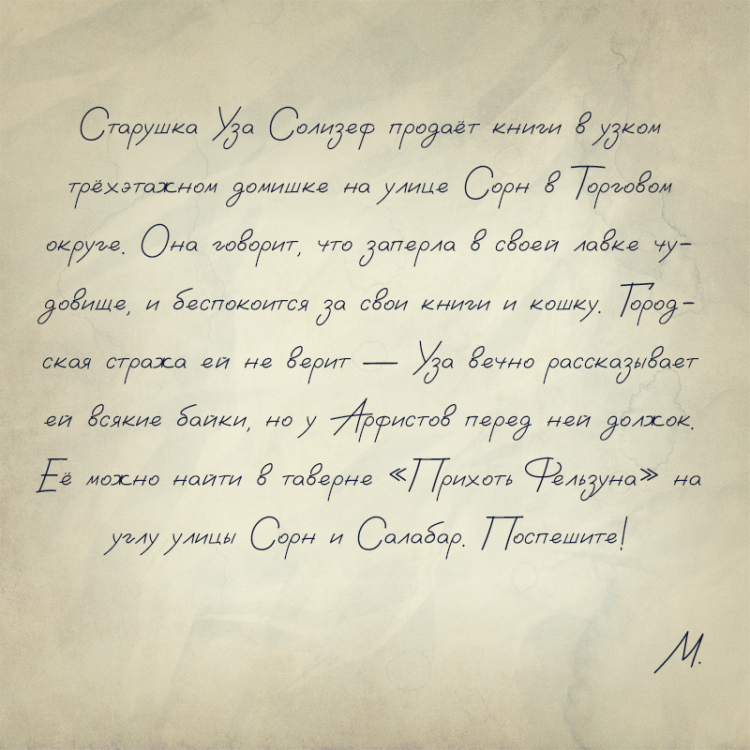 Старушка Уза Солизеф продаёт книги в узком
трёхэтажном домишке на улице Сорн в Торговом
округе. Она говорит, что заперла в своей лавке чу-
довище, и беспокоится за свои книги и кошку. Город-
ская стража ей не верит — Уза вечно рассказывает
ей всякие байки, но у Арфистов перед ней должок.
Её можно найти в таверне «Прихоть Фельзуна» на
углу улицы Сорн и Салабар. Поспешите!
М.